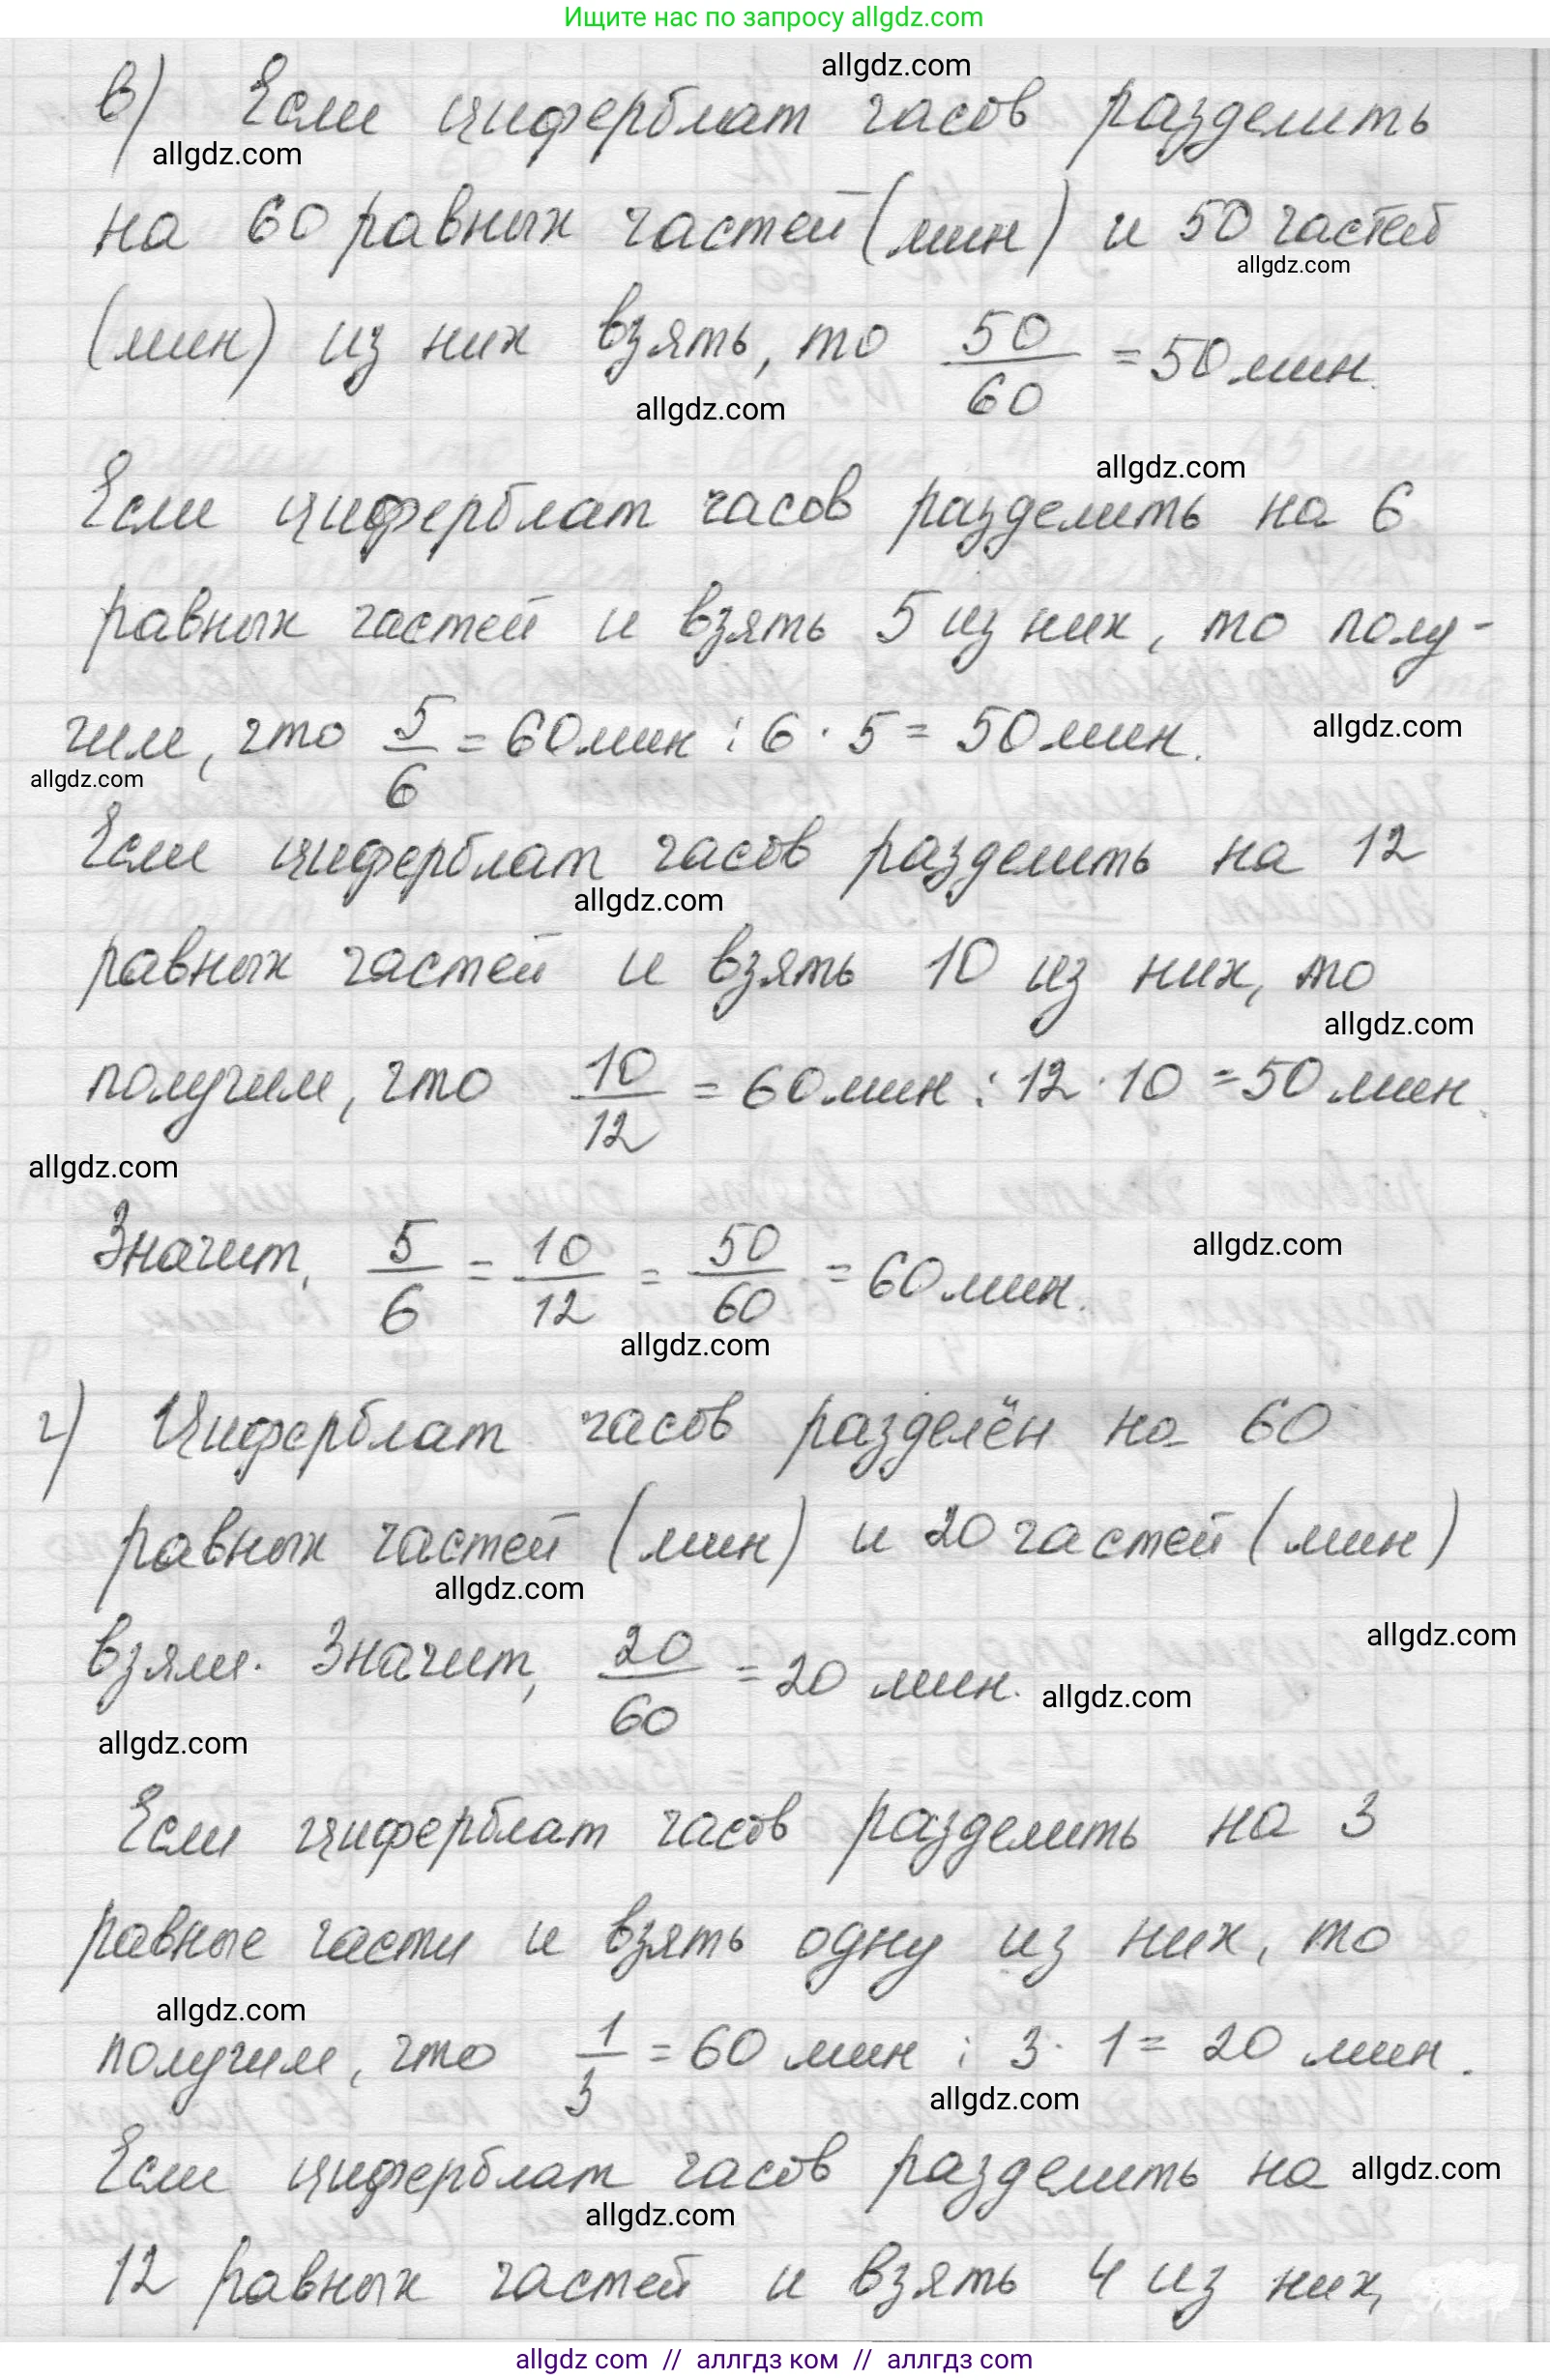 Ищите нас по запросу allgdz.com
allgdz.com
в) Если циферблат часов разделить
allgdz.com
на 60 равных частей (мин) и 50 частей
allgdz.com
(мин) из них взять, то 50/60 = 50 мин.
allgdz.com
allgdz.com
Если циферблат часов разделить на 6
равных частей и взять 5 из них, то полу-
чим, что 5/6 = 60 мин : 6 · 5 = 50 мин.
allgdz.com
allgdz.com
Если циферблат часов разделить на 12
allgdz.com
равных частей и взять 10 из них, то
allgdz.com
получим, что 10/12 = 60 мин : 12 · 10 = 50 мин.
allgdz.com
Значит, 5/6 = 10/12 = 50/60 = 60 мин.
allgdz.com
allgdz.com
г) Циферблат часов разделён на 60
равных частей (мин) и 20 частей (мин)
allgdz.com
взяли. Значит, 20/60 = 20 мин.
allgdz.com
allgdz.com
allgdz.com
Если циферблат часов разделить на 3
равные части и взять одну из них, то
allgdz.com
получим, что 1/3 = 60 мин : 3 · 1 = 20 мин.
allgdz.com
Если циферблат часов разделить на
allgdz.com
allgdz.com
12 равных частей и взять 4 из них,
allgdz com // аллгдз ком // аллгдз com